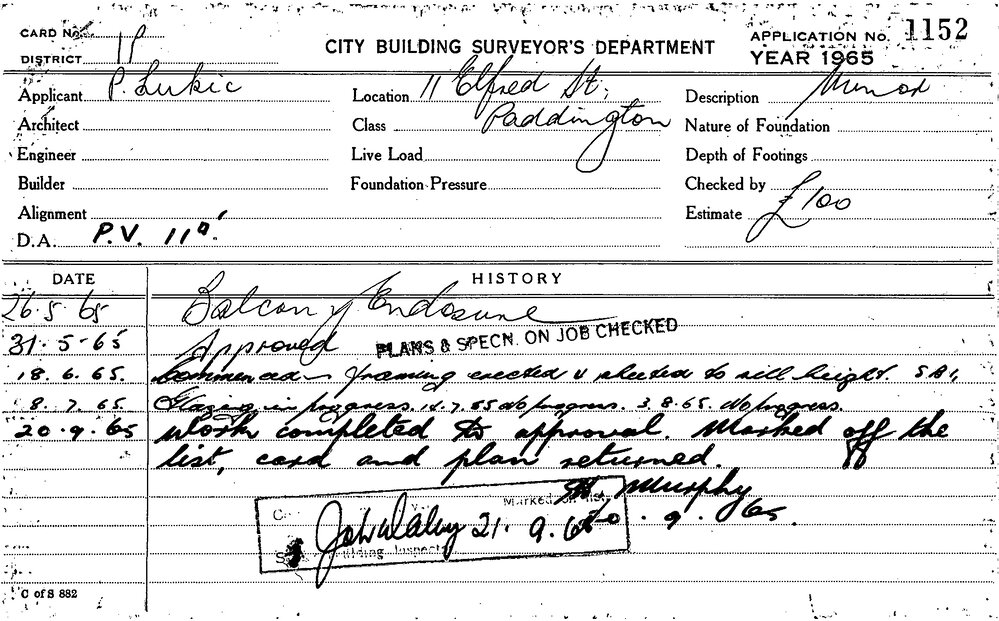 CARD No.
CITY BUILDING SURVEYOR'S DEPARTMENT
APPLICATION No. 1152
DISTRICT
YEAR 1965
Applicant P. Lukic
Location 11 Elfred St,
Description Minor
Architect
Class Paddington
Nature of Foundation
Engineer
Live Load
Depth of Footings
Builder
Foundation Pressure
Checked by
Alignment
Estimate £100
D.A. P.V. 11
DATE
HISTORY
26.5.65 Balcony Enclosure
31.5.65 Approved PLANS & SPECN. ON JOB CHECKED
18.6.65. Commenced framing erected & sheeted to sill height.
8.7.65. Glazing in progress. 14.7.65 No progress. 3.8.65. No progress.
20.9.65 Work completed to approval. Marked off the
list, card and plan returned.
Murphy
Marked
21.9.65
20.9.65.
Building Inspect
C of S 882